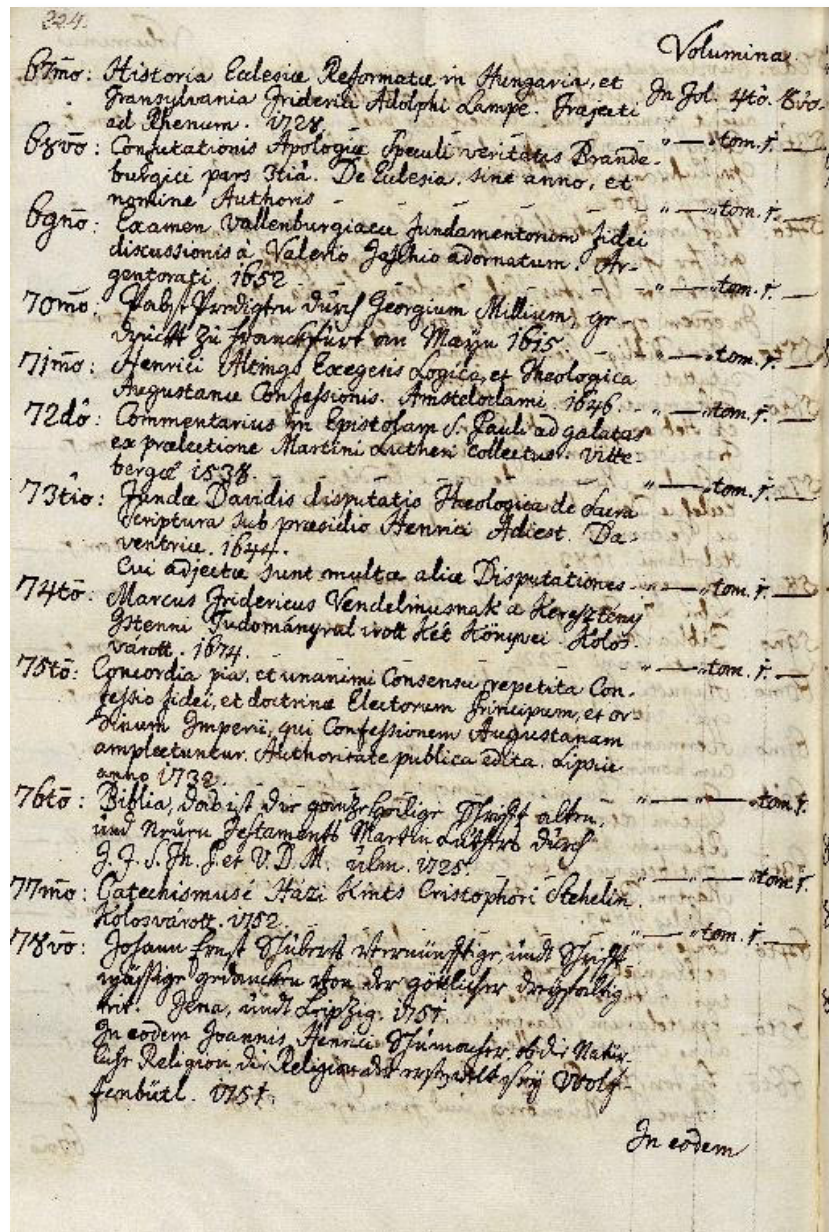 224.
Volumina
In Fol. 4tô. 8vo.
67mō: Historia Eclesiæ Reformatæ in Hungaria, et
Transylvania Friderici Adolphi Lampe. Trajecti
ad Rhenum. 1728. " — " tom. 1. —
68vō: Confutationis Apologiæ Speculi veritatis Brande-
burgici pars 3tia. De Eclesia. sine anno, et
nomine Authoris - - - - " — " tom. 1. —
69nō: Examen Vallenburgiacu fundamentorum fidei
discussionis à Valerio Jaschio adornatum. Ar-
gentorati. 1652 - - - - " — " tom. 1. —
70mō: Pabst Predigten durch Georgium Millium, ge-
druckt zu Franckfurt am Mayn 1615 " — " tom. 1. —
71mō: Henrici Altings Exegesis Logica, et Theologica
Augustanæ Confessionis. Amstelodami. 1646. - " — " tom. 1. —
72dô: Commentarius in Epistolam S. Pauli ad galatas
ex prælectione Martini Lutheri Collectus. Vitte-
bergæ 1538. - - - - " — " tom. 1. —
73tîo: Fundæ Davidis disputatio Theologica de Sacra
Scriptura sub præsidio Henrici Adiest. Da-
ventriæ. 1644.
Cui adjectæ sunt multæ aliæ Disputationes - " — " tom. 1. —
74tō: Marcus Fridericus Vendelinusnak a Keresztény
Istenni Tudományral irott Két Könyvei. Kolos-
várott. 1674. - - - - " — " tom. 1. —
75tō: Concordia pia, et unanimi Consensu repetita Con-
fessio fidei, et doctrinæ Electorum Principum, et or-
dinum Imperii, qui Confessionem Augustanam
amplectuntur. Authoritate publica edita. Lipsiæ
anno 1732. - - - - " — " — " tom 1.
76tō: Biblia, daß ist die gantze heilige Schrifft alten,
und Neuen Testaments Martin Luthers durch
J. F. S. Th. P. et V. D. M. Ulm. 1725. " — " — " tom 1.
77mō: Catechismusi Házi Kints Cristophori Stehelin
Kolosvárott. 1752. - - - - " — " tom. 1. —
78vō: Johann Ernst Schuberts Vernünftige, undt Schrifft
mässige gedancken Von der göttlicher dreyfaltig-
keit. Jena, undt Leipzig. 1751.
In eodem Joannis Henrici Schumacher, ob die Natür-
liche Religion, die Religion der erst welt sey Wolf-
fenbütl. 1751.
In eodem